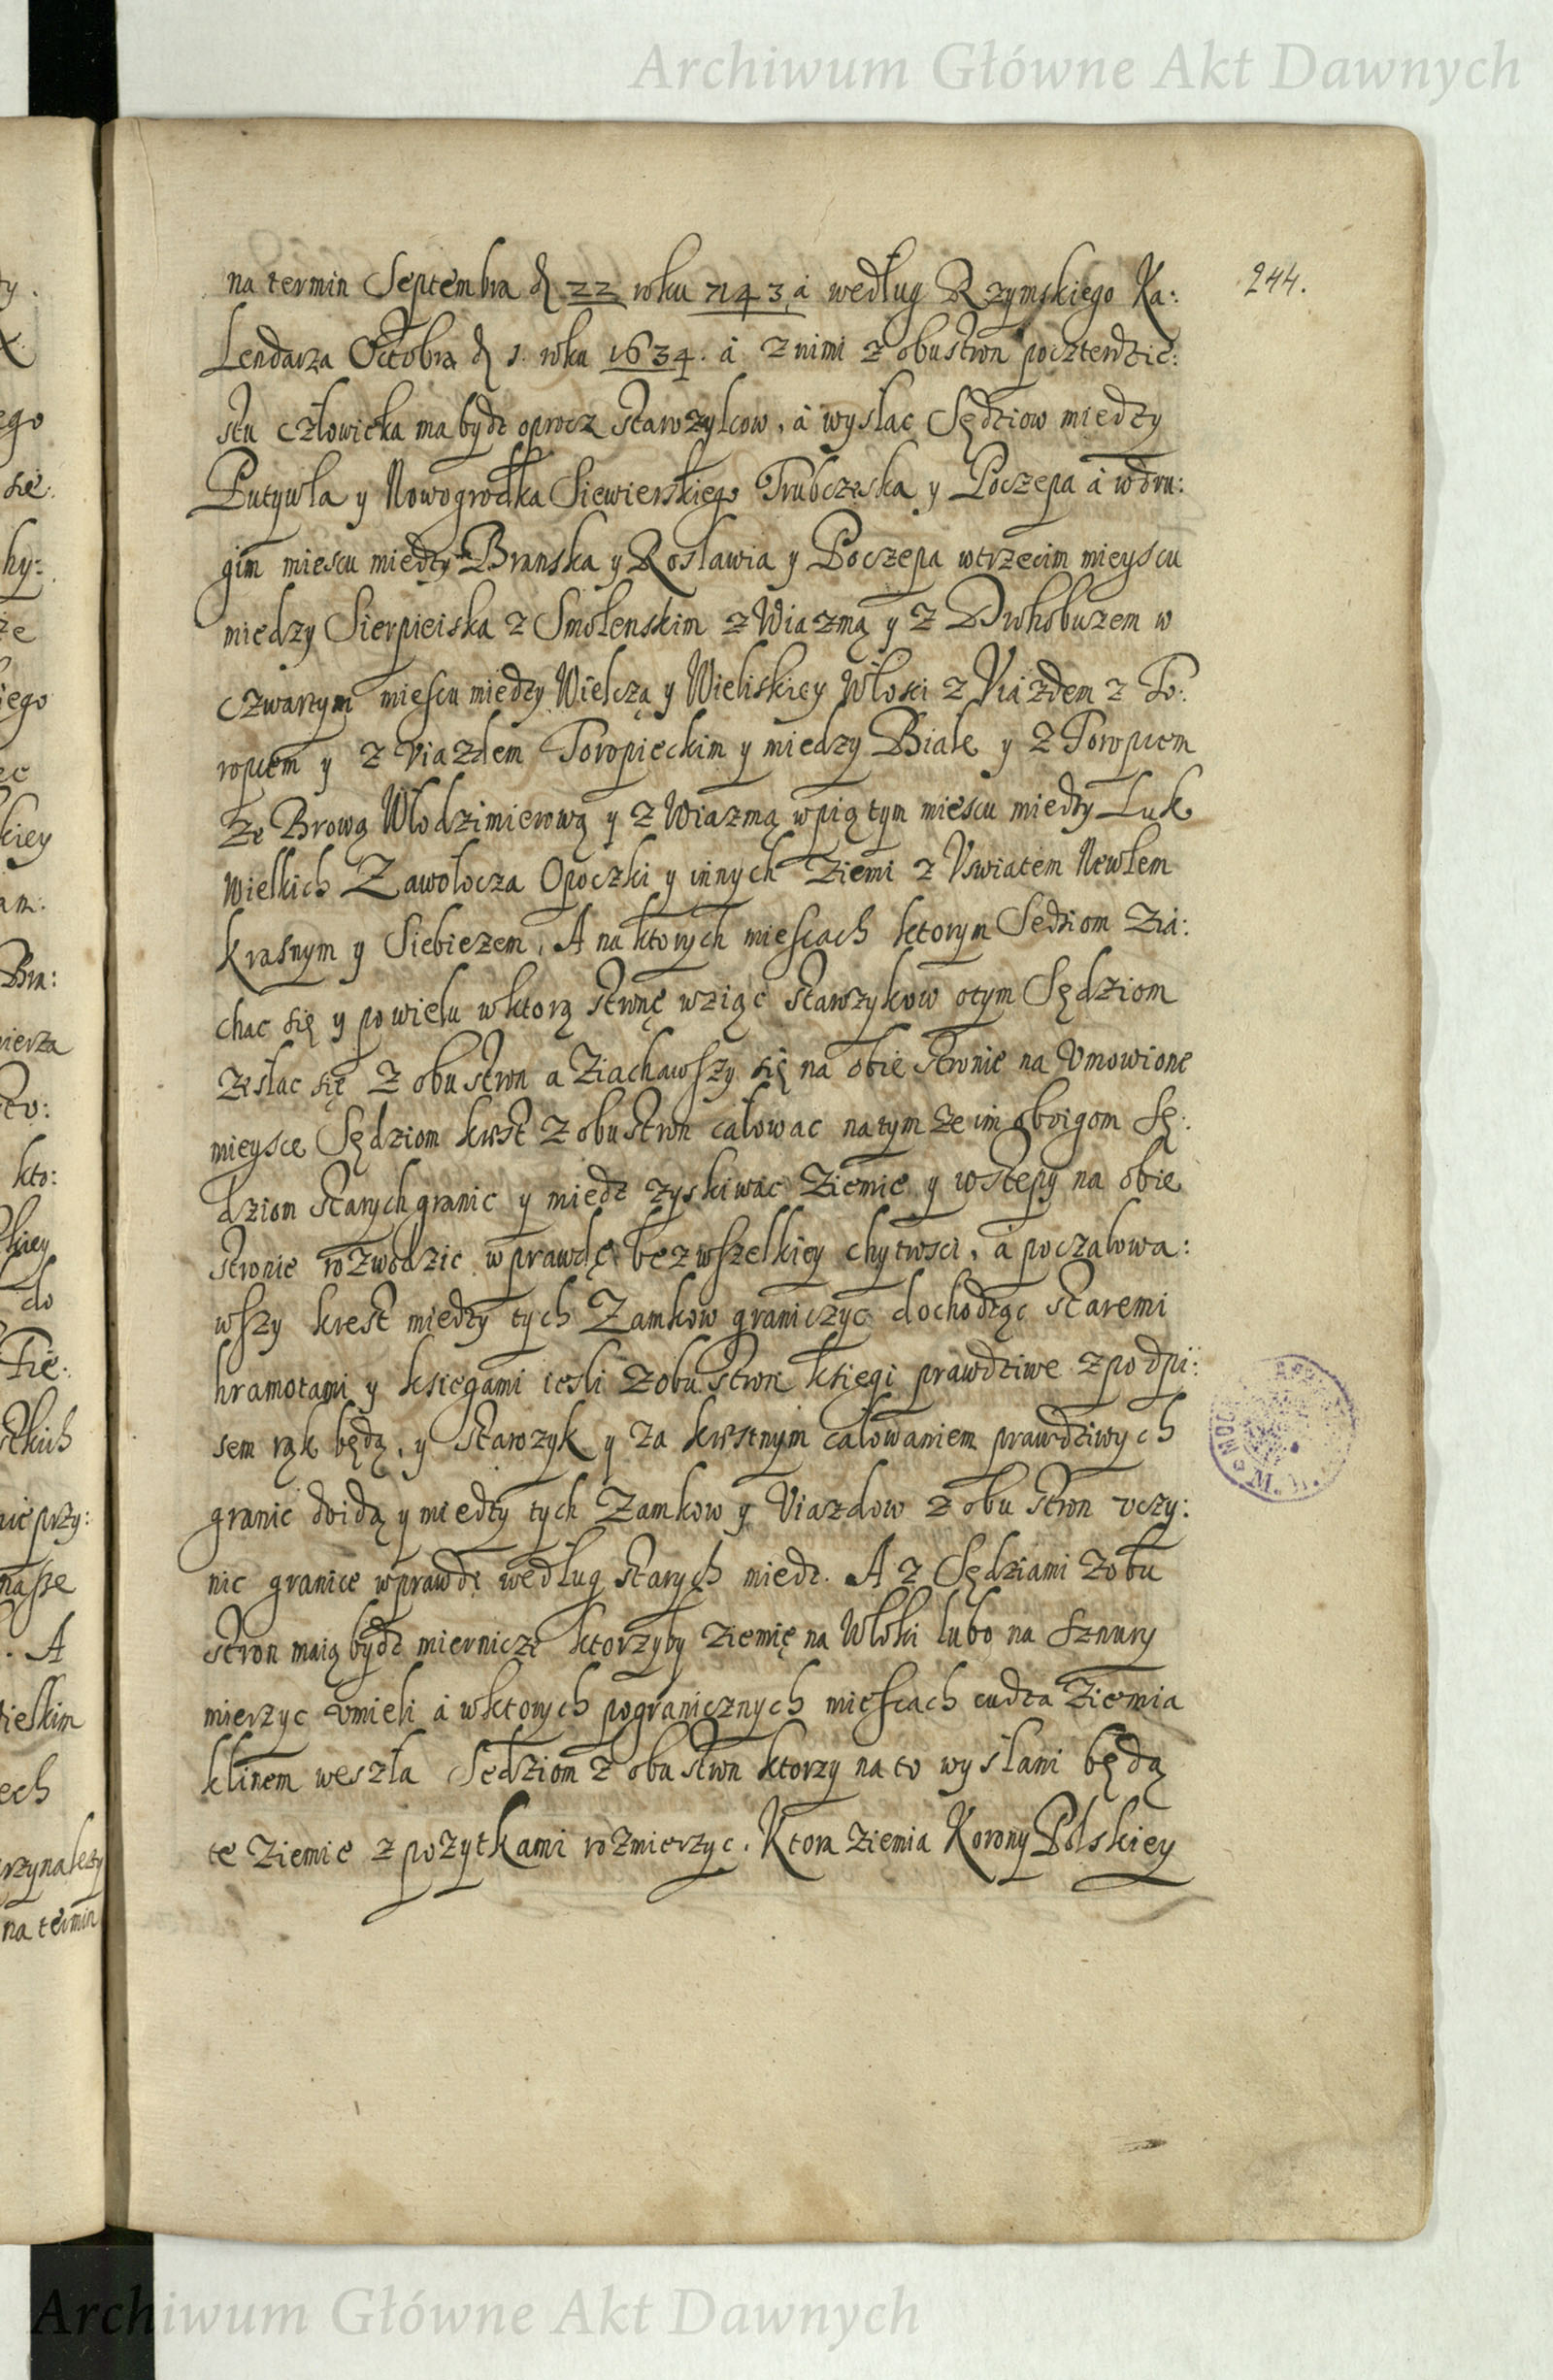 Archiwum Główne Akt Dawnych
244.
na termin Septembra d 22 roku 7143, á według Rzymskiego Ka:
Lendarza Octobra d 1. roku 1634. á z nimi z obu stron poczterdzie:
stu człowieka ma bydz oprocz starozylcow, á wysłac Sędziow między
Putywla y Nowogrodka Siewierskiego Trubczeska y Poczepa á w dru:
gim miescu miedzy Branska y Rosławia y Poczepa w trzecim mieyscu
miedzy Sierpieiska z Smolenskim z Wiazmą y z Drohobuzem w
czwartym miescu miedzy Wielczą y Wieliskiey Włosci z Viazdem z To:
ropcem y z Viazdem Toropieckim y miedzy Białe y z Toropcem
ze Brową Włodzimierową y z Wiazmą w piątym miescu miedzy Luk
Wielkich Zawołocza Opoczki y innych Ziemi z Vswiatem Newlem
Krasnym y Siebiezem. A na ktorych miescach ktorym Sedziom Zia:
chac się y po wielu w ktorą stronę wziąc starozykow o tym Sędziom
zesłac się z obu stron a Ziachawszy się na obie stronie na Vmowione
mieysce Sędziom krest z obu stron całowac na tym ze im oboigom Sę:
dziom starych granic y miedz zyskiwac Ziemie y wstepy na obie
stronie rozwodzic w prawdę bez wszelkiey chytrosci, á poczałowa:
wszy krest miedzy tych Zamkow graniczyc dochodząc staremi
hramotami y ksiegami iesli z obu stron księgi prawdziwe z podpi:
sem rąk będą, y starozyk y za krestnym całowaniem prawdziwych
granic doidą y miedzy tych Zamkow y Viazdow z obu stron vczy:
nic granice w prawdę według starych miedz. A z Sędziami z obu
stron maią bydz miernicze ktorzyby ziemię na Włoki lubo na sznury
mierzyc vmieli á w ktorych pogranicznych miescach cudza Ziemia
klinem weszła Sedziom z obu stron ktorzy na to wysłani będą
te Ziemie z pozytkami rozmierzyc. Ktora Ziemia Korony Polskiey
Archiwum Główne Akt Dawnych